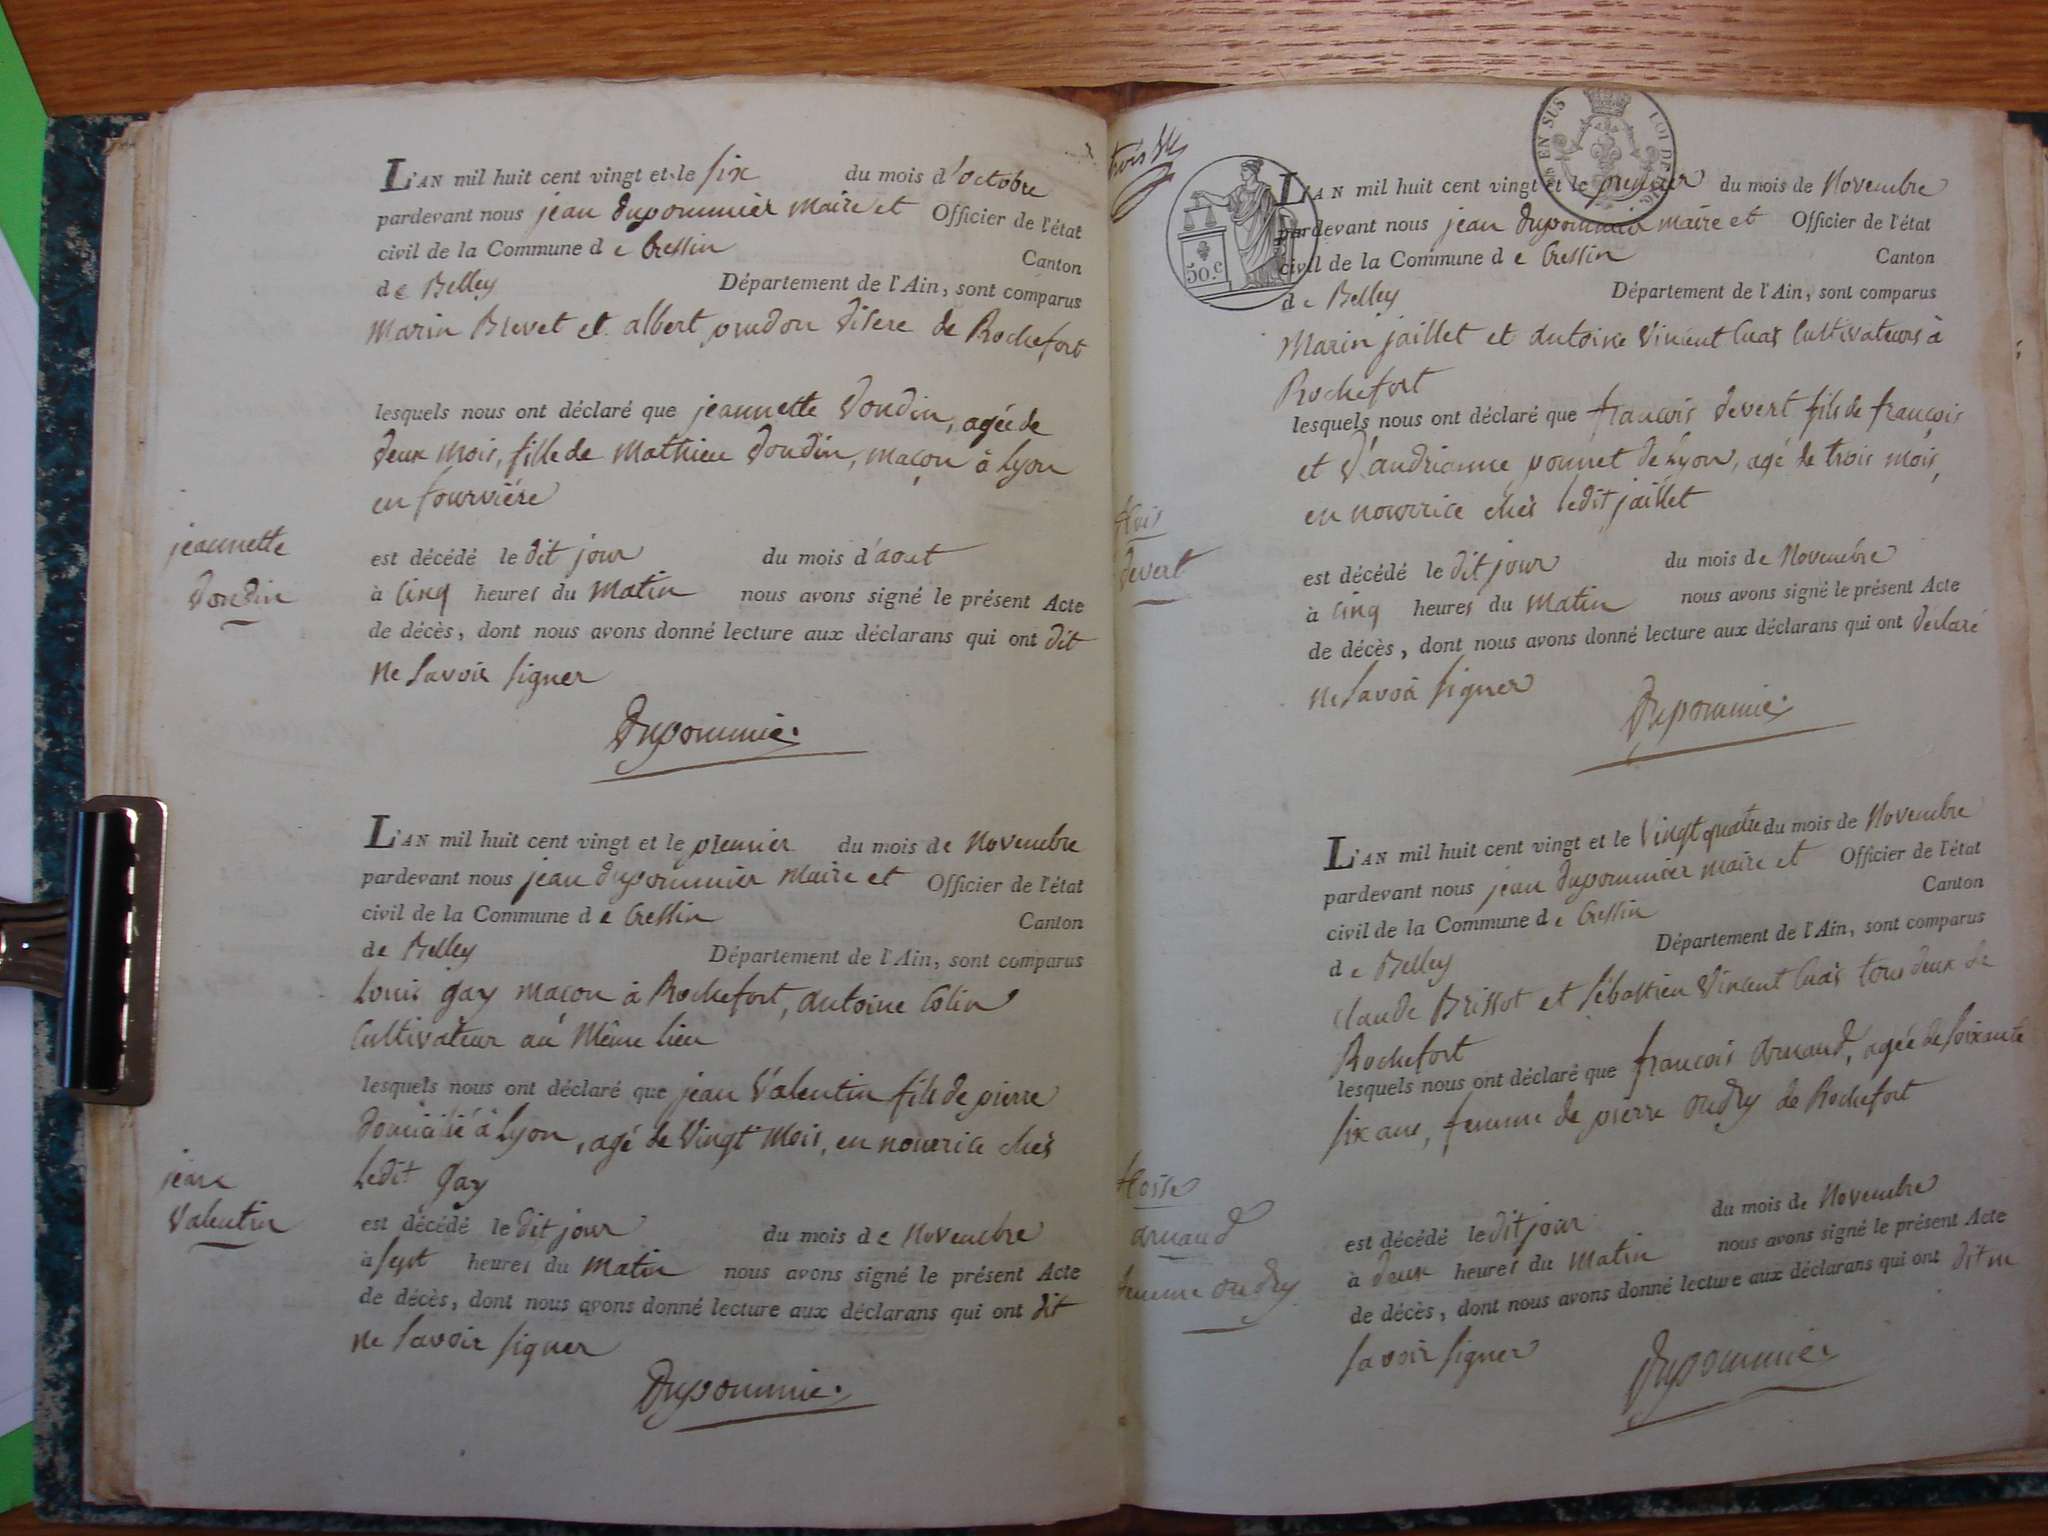 L'AN mil huit cent vingt et le six du mois d'octobre
pardevant nous jean dupommier maire et Officier de l'état
civil de la Commune de Cressin Canton
de Belley Département de l'Ain, sont comparus
Marin Brevet et albert prudon de Rochefort
lesquels nous ont déclaré que jeannette dondin, agée de
deux mois, fille de Mathieu dondin, maçon à Lyon
en fourviére
jeannette
dondin
est décédé le dit jour du mois d'aout
à cinq heures du matin nous avons signé le présent Acte
de décès, dont nous avons donné lecture aux déclarans qui ont dit
ne savoir signer
Dupommier
L'AN mil huit cent vingt et le premier du mois de Novembre
pardevant nous jean dupommier maire et Officier de l'état
civil de la Commune de Cressin Canton
de Belley Département de l'Ain, sont comparus
Louis gay maçon à Rochefort, antoine Colin
Cultivateur au Même lieu
lesquels nous ont déclaré que jean Valentin fils de pierre
domicilié à Lyon, agé de Vingt Mois, en nourrice chés
ledit gay
jean
Valentin
est décédé le dit jour du mois de Novembre
à sept heures du matin nous avons signé le présent Acte
de décès, dont nous avons donné lecture aux déclarans qui ont dit
ne savoir signer
Dupommier
trois
EN SUS LOI DE
50.c
L'AN mil huit cent vingt et le premier du mois de Novembre
pardevant nous jean dupommier maire et Officier de l'état
civil de la Commune de Cressin Canton
de Belley Département de l'Ain, sont comparus
Marin jaillet et antoine Vincent Cultivateurs à
Rochefort
lesquels nous ont déclaré que françois devert fils de françois
et d'andrianne ponnet de Lyon, agé de trois mois,
en nourrice chés ledit jaillet
devert
est décédé le dit jour du mois de Novembre
à cinq heures du matin nous avons signé le présent Acte
de décès, dont nous avons donné lecture aux déclarans qui ont déclaré
ne savoir signer
Dupommier
L'AN mil huit cent vingt et le Vingt quatre du mois de Novembre
pardevant nous jean dupommier maire et Officier de l'état
civil de la Commune de Cressin Canton
de Belley Département de l'Ain, sont comparus
Claude Brissot et sébastien Vincent tous deux de
Rochefort
lesquels nous ont déclaré que françois arnaud, agée de soixante
six ans, femme de pierre oudry de Rochefort
arnaud
femme oudry
est décédé le dit jour du mois de Novembre
à deux heures du matin nous avons signé le présent Acte
de décès, dont nous avons donné lecture aux déclarans qui ont dit ne
savoir signer
Dupommier